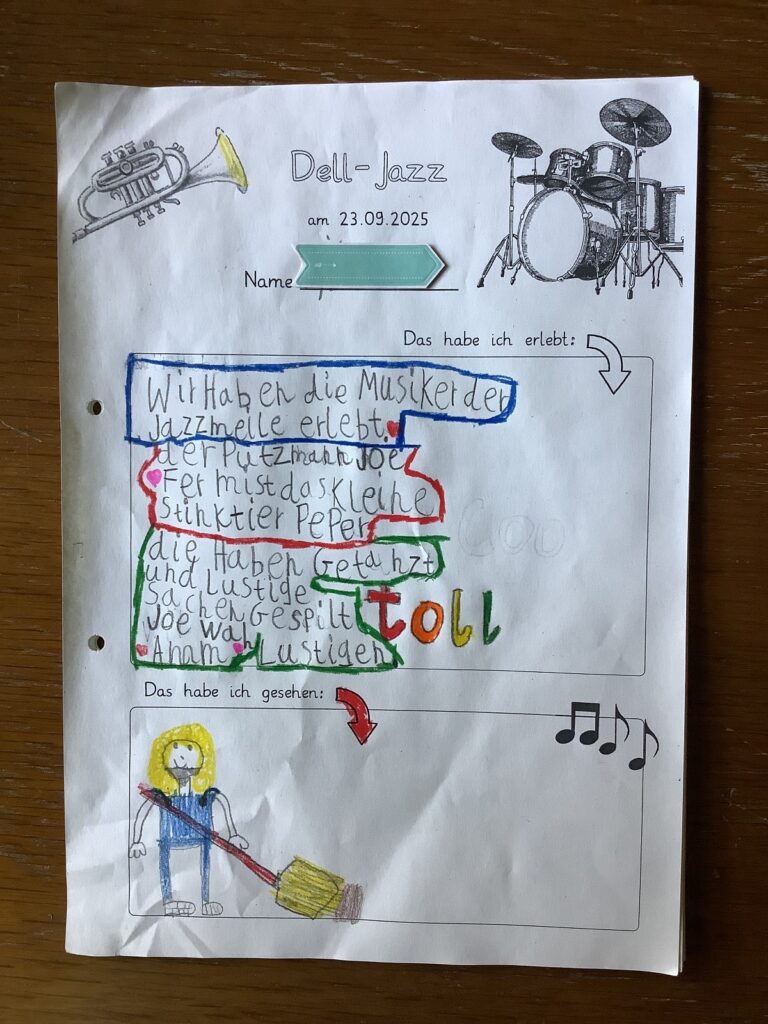 Dell-Jazz
am 23.09.2025
Name
Das habe ich erlebt:
Wir Haben die Musiker der
Jazzmelle erlebt.
der Putzmann Joe
Fer mist das Kleine
Stinktier PePer
die Haben Getanzt
und Lustige
Sachen Gespilt
Joe wah
Anam Lustigen
toll
Coo
Das habe ich gesehen: